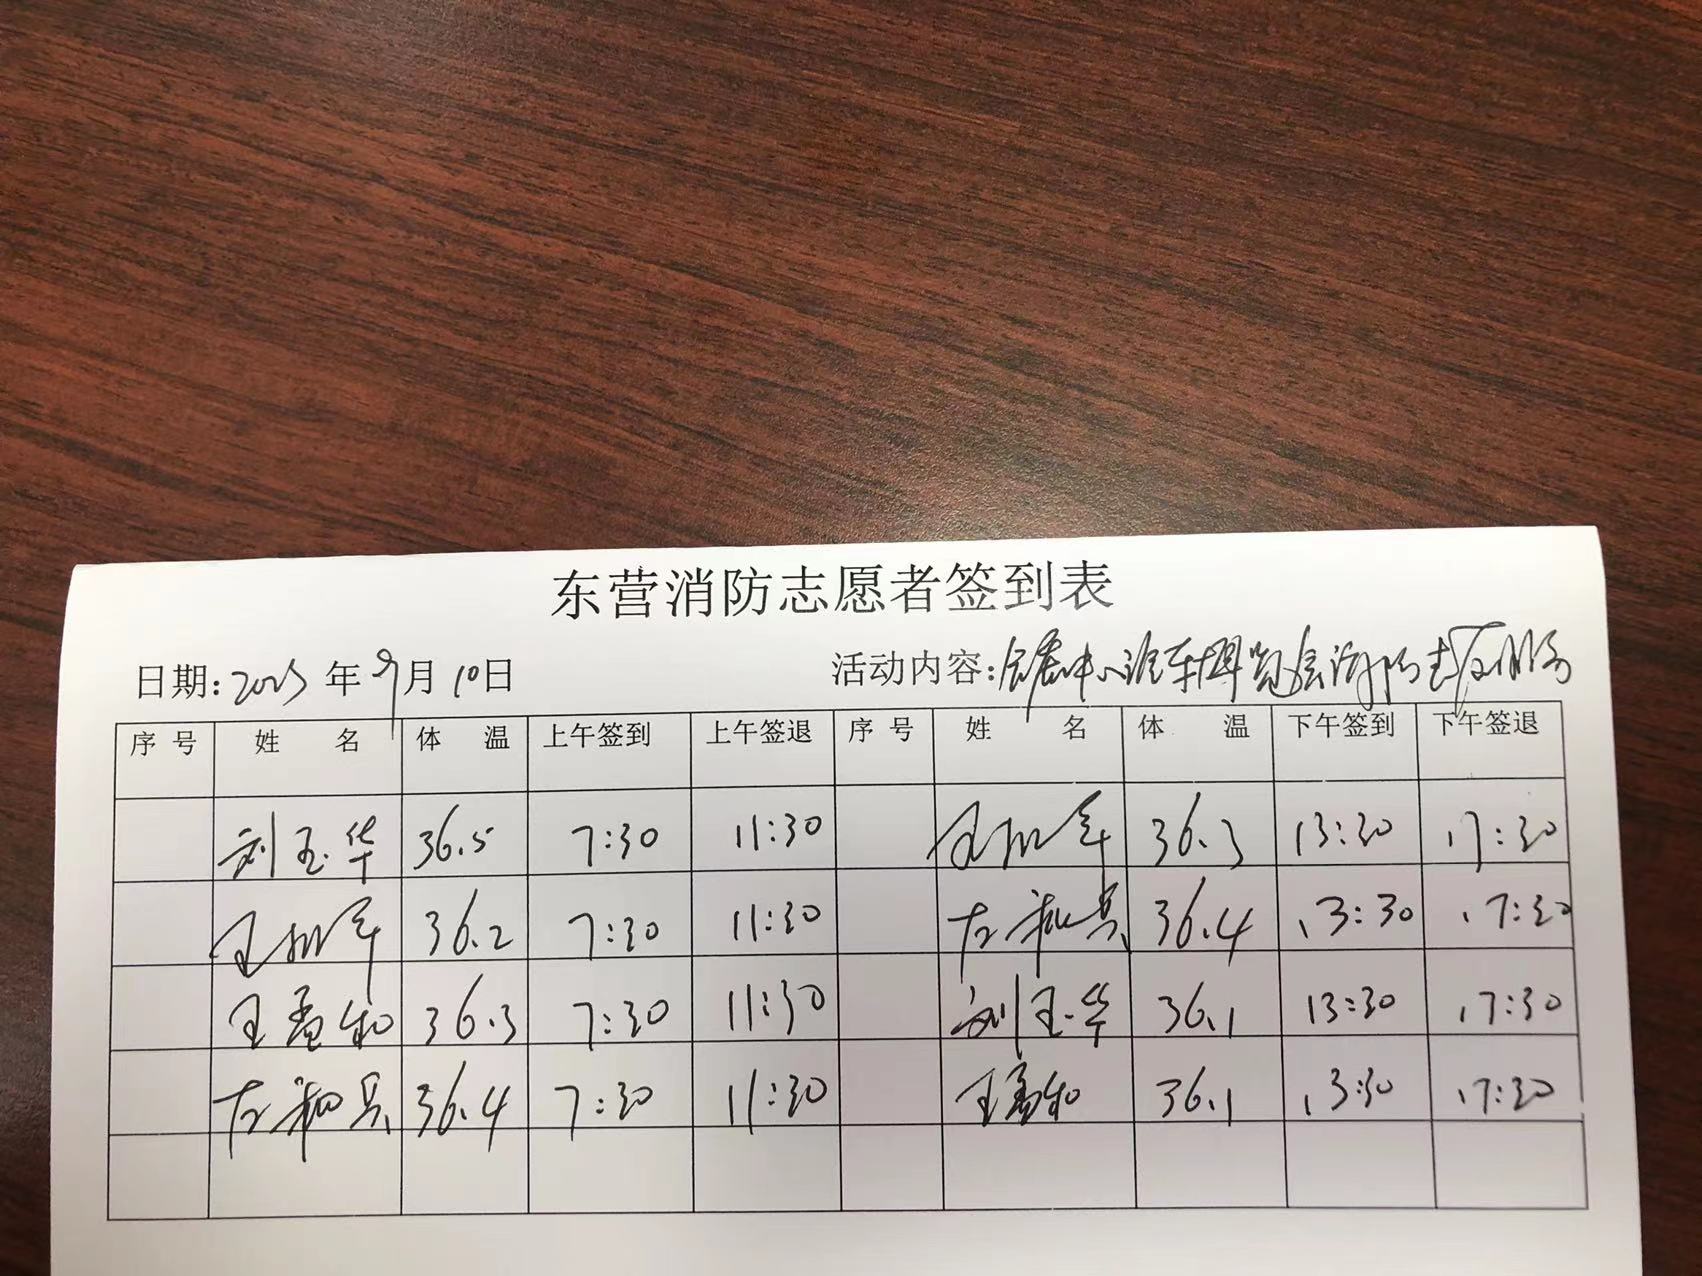 东营消防志愿者签到表
日期: 2023 年 9 月 10 日 活动内容: 会展中心汽车博览会消防志愿服务
序号 姓名 体温 上午签到 上午签退 序号 姓名 体温 下午签到 下午签退
刘玉华 36.5 7:30 11:30 王 军 36.3 13:30 17:30
王 军 36.2 7:30 11:30 36.4 13:30 17:30
王孟和 36.3 7:30 11:30 刘玉华 36.1 13:30 17:30
36.4 7:30 11:30 王孟和 36.1 13:30 17:30